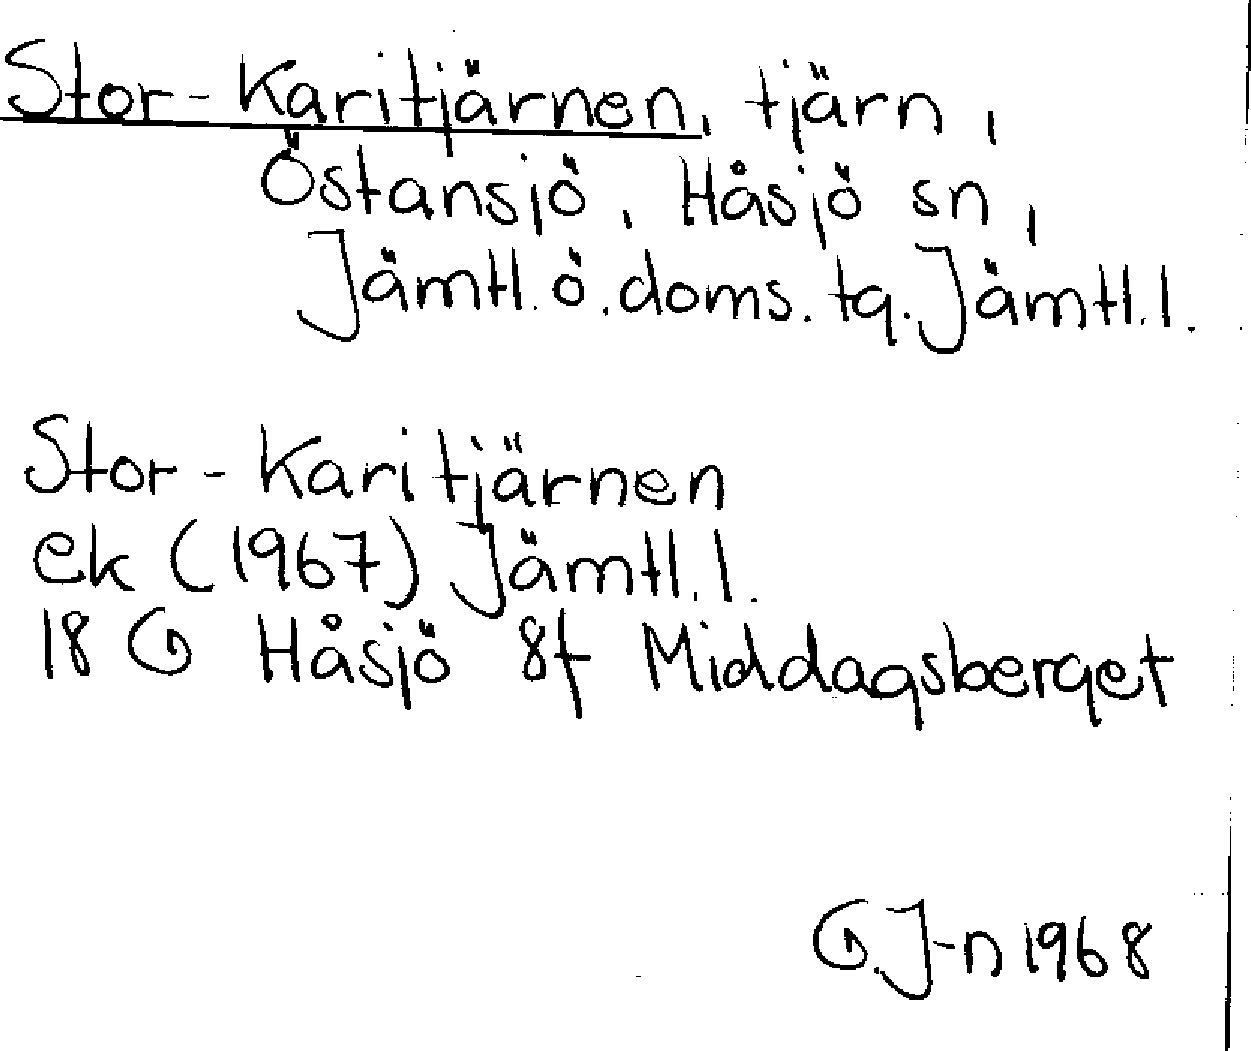 Stor-Karitjärnen, tjärn,
Östansjö, Håsjö sn,
Jämtl. ö. doms. tg. Jämtl. l.
Stor-Karitjärnen
ek (1967) Jämtl. l.
18 G Håsjö 8f Middagsberget
G. J-n 1968